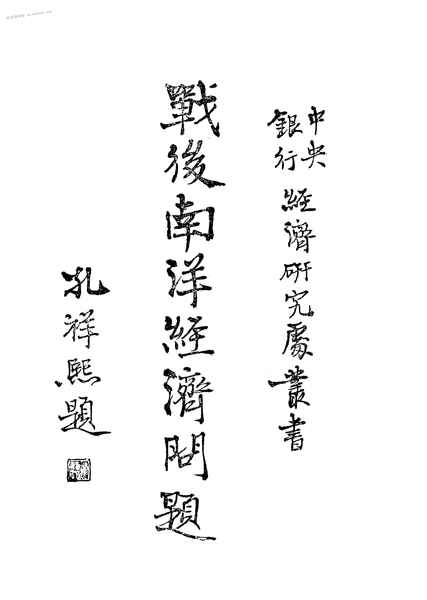 中央銀行經濟研究處叢書
戰後南洋經濟問題
孔祥熙題